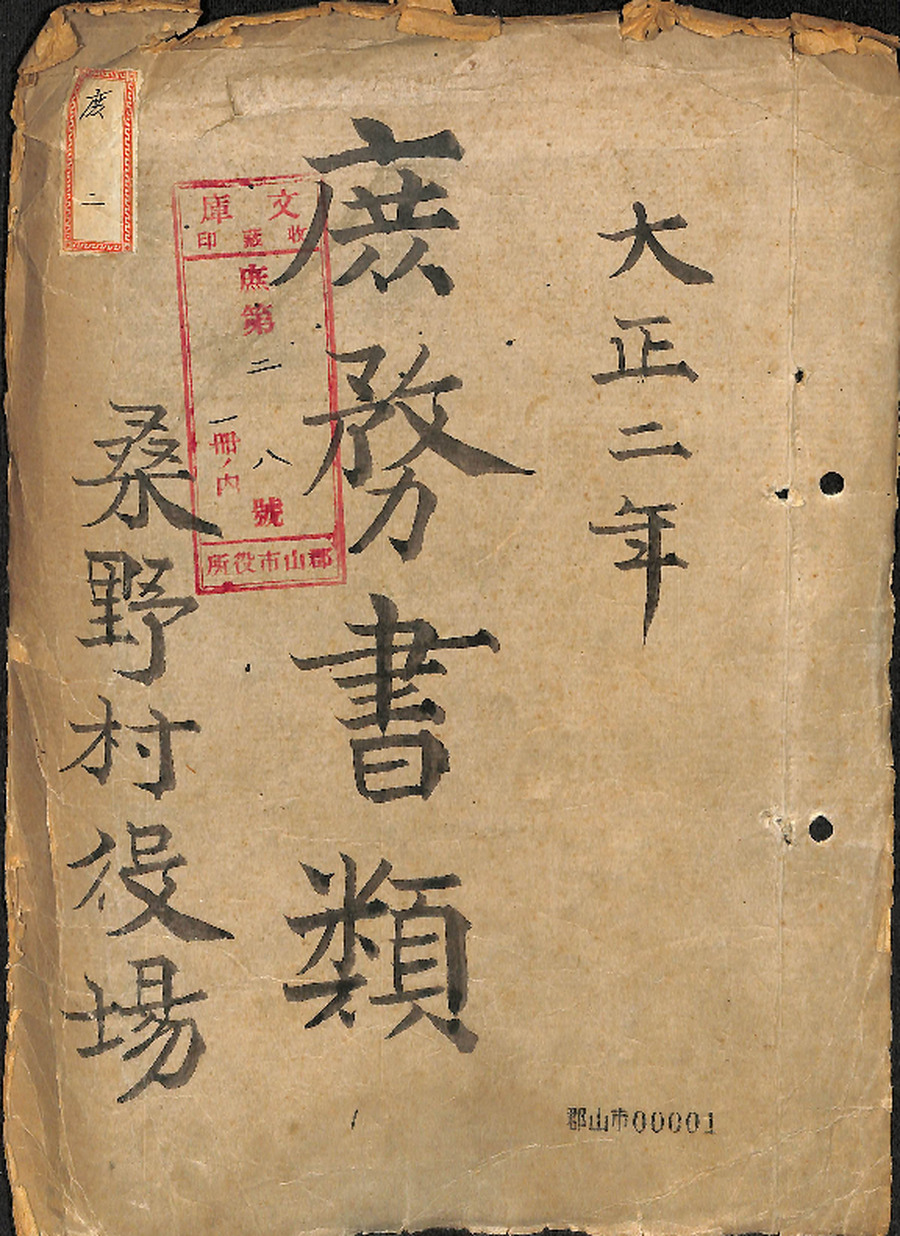 大正二年
庶務書類
桑野村役場
庶
二
文庫
收蔵印
庶第二八號
一冊ノ内
郡山市役所
郡山市00001